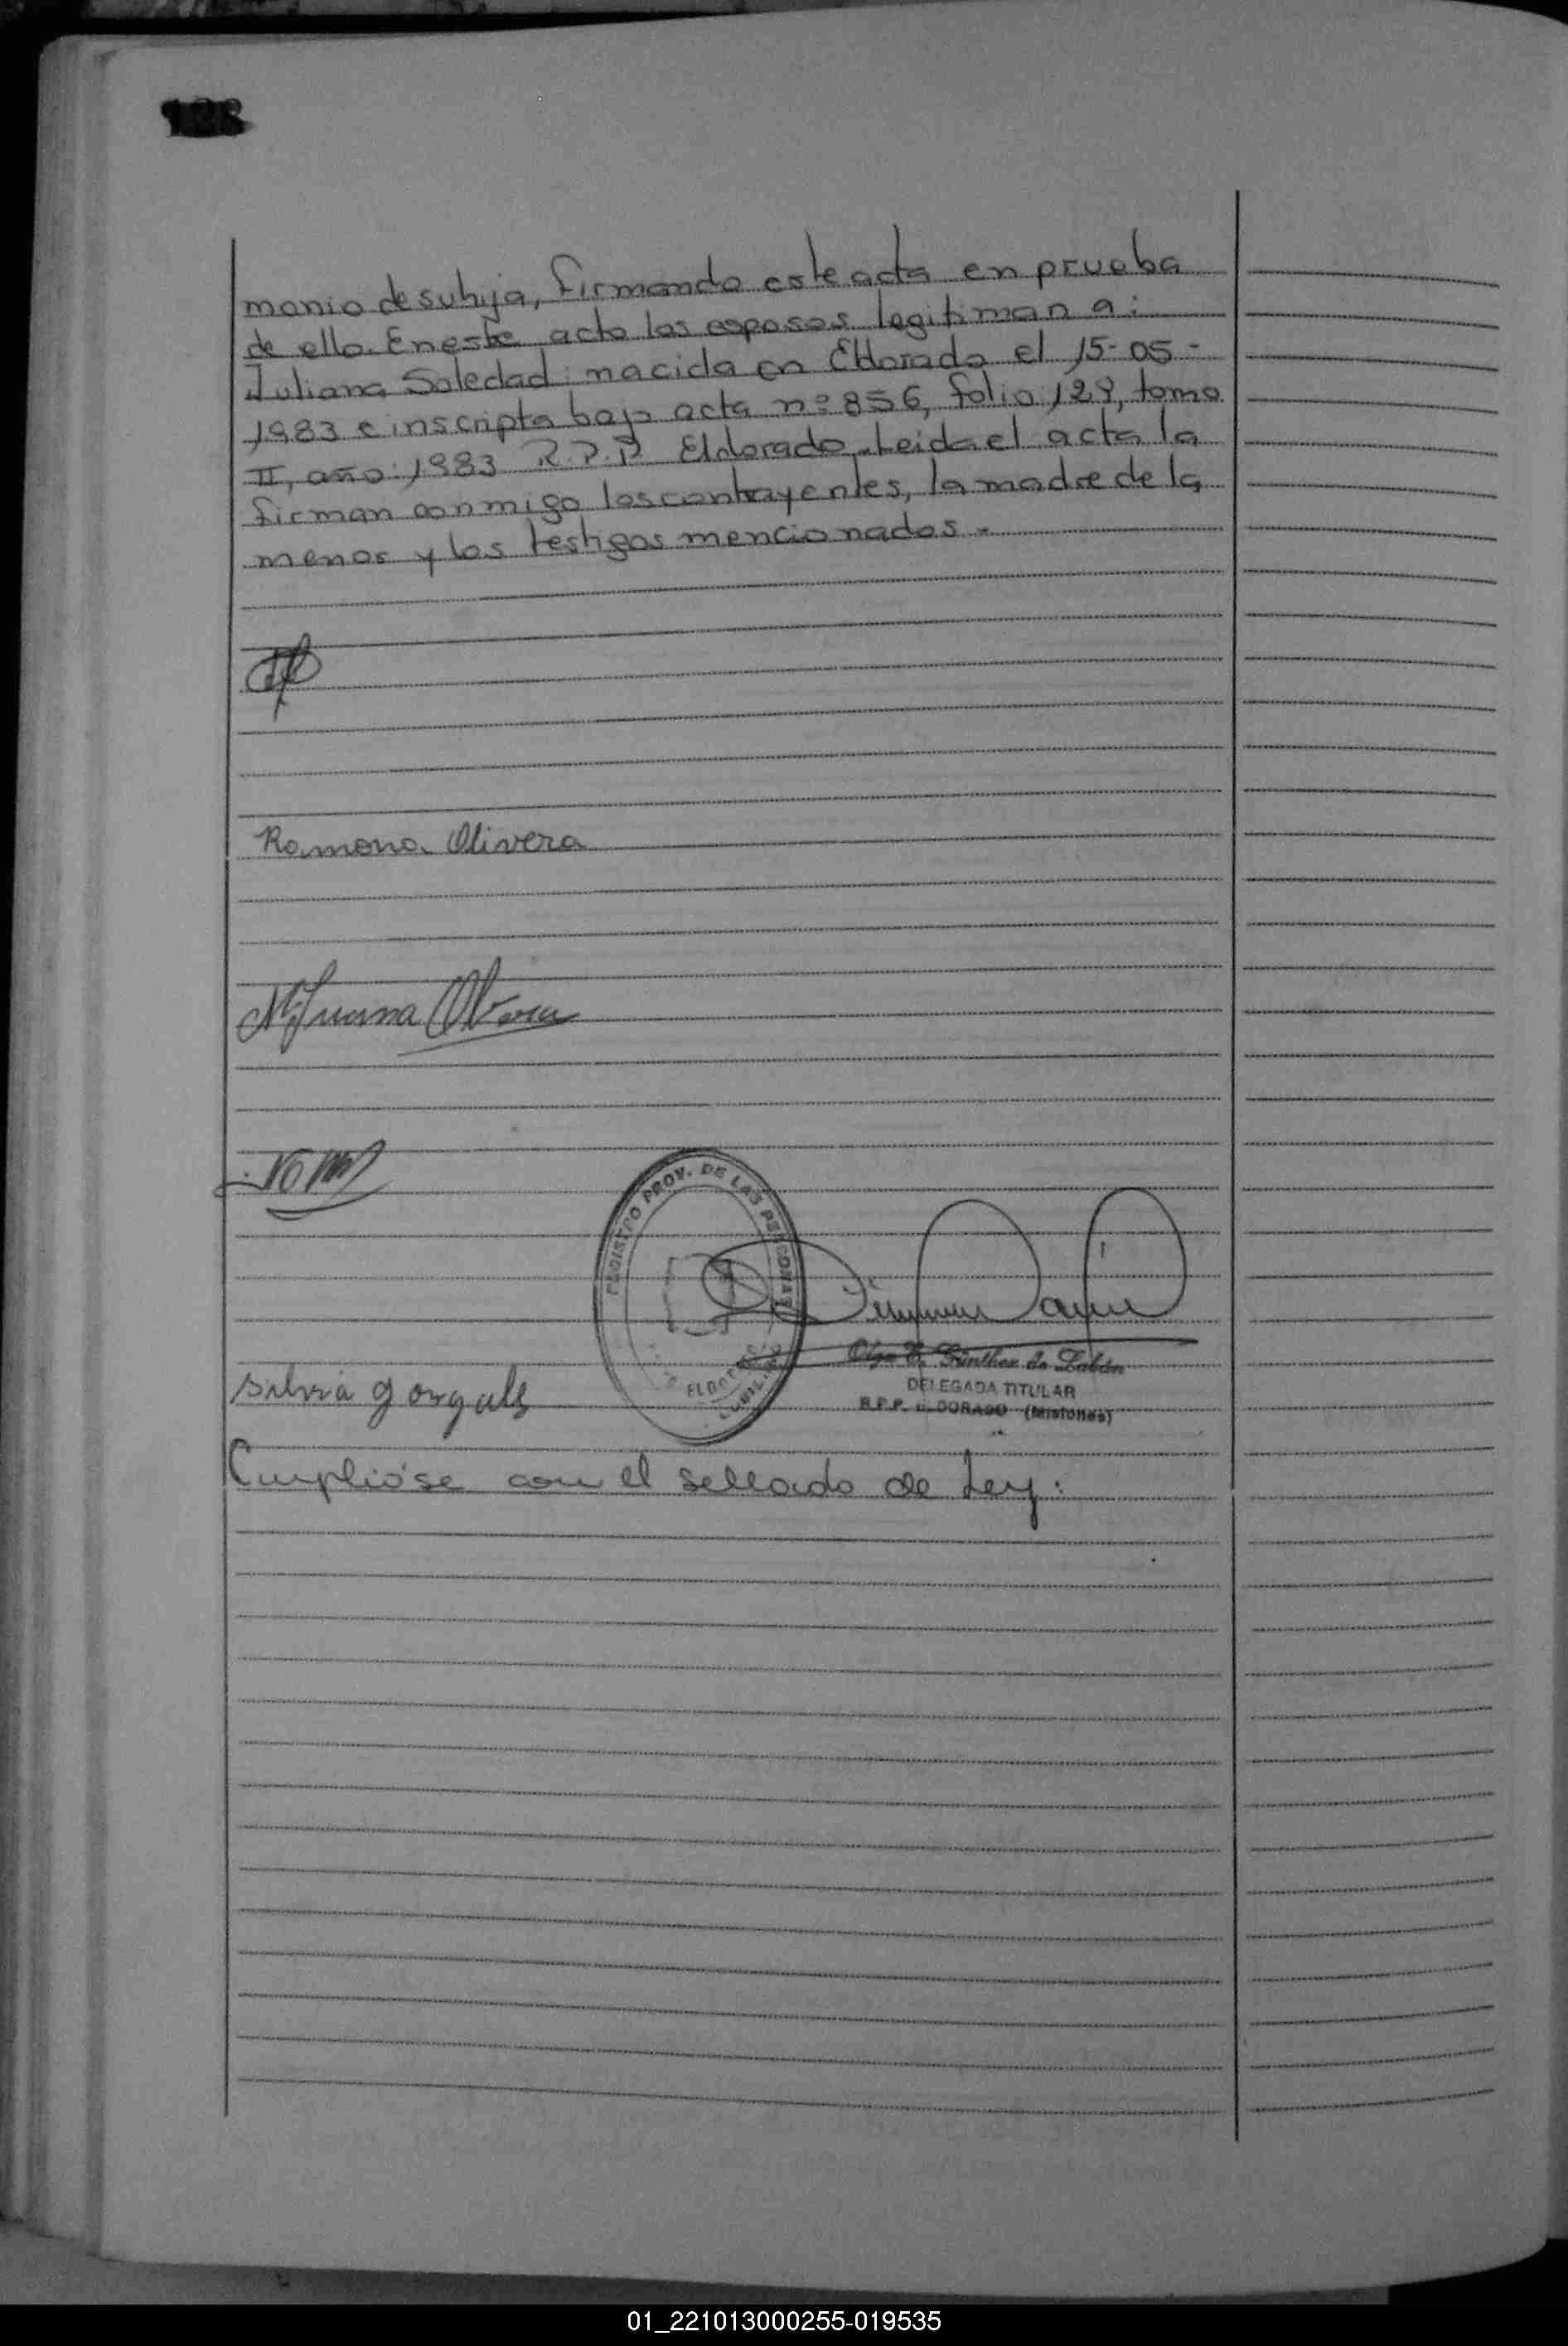 128
monio de su hija, firmando este acta en prueba
de ello. En este acto los esposos legitiman a:
Juliana Soledad: nacida en Eldorado el 15-05-
1983 e inscripta bajo acta nº 856, folio 129, tomo
II, año: 1983 R.P.P Eldorado. Leida el acta la
firman conmigo los contrayentes, la madre de la
menor y los testigos mencionados.-
Ramona Olivera
Mª Juana Olivera
REGISTRO PROV. DE LAS PERSONAS
ELDORADO
Olga E. Günther de Labán
DELEGADA TITULAR
R.P.P. ELDORADO (Misiones)
Silvia
Cumplióse con el sellado de Ley:
01_221013000255-019535